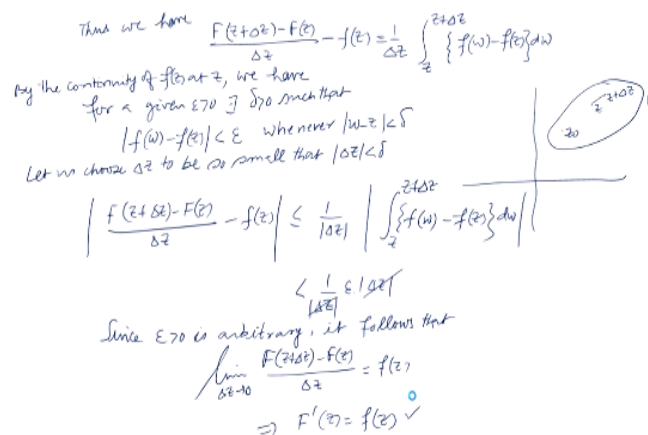 Thus we have F(z+Δz)-F(z)/Δz - f(z) = 1/Δz ∫_z^{z+Δz} {f(w)-f(z)}dw
By the continuity of f(z) at z, we have
for a given ε>0 ∃ δ>0 such that
|f(w)-f(z)| < ε whenever |w-z|<δ
z z+Δz
z0
Let us choose Δz to be so small that |Δz|<δ
|F(z+Δz)-F(z)/Δz - f(z)| ≤ 1/|Δz| |∫_z^{z+Δz} {f(w)-f(z)}dw|
< 1/|Δz| ε|Δz|
Since ε>0 is arbitrary, it follows that
lim_{Δz→0} F(z+Δz)-F(z)/Δz = f(z)
⇒ F'(z) = f(z) ✓